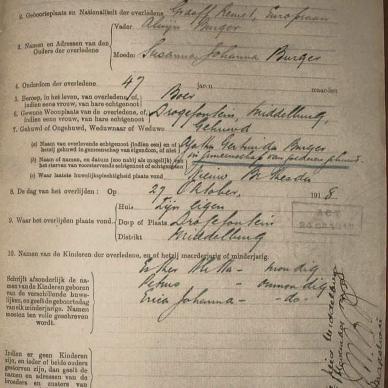 2. Geboorteplaats en Nationaliteit der overledene Graaff Reinet, Europeaan
3. Namen en Adressen van den Ouders der overledene
Vader Burger
Moeder Susanna Johanna Burger
4. Ouderdom der overledene 47 jaren maanden
5. Beroep, in het leven, van overledene of, indien eene vrouw, van hare echtgenoot Boer
6. Gewone Woonplaats van de overledene, of, indien eene vrouw, van hare echtgenoot Drogefontein, Middelburg
7. Gehuwd of Ongehuwd, Weduwnaar of Weduwe Gehuwd
(a) Naam van overlevende echtgenoot (indien een) of laatst gehuwd in gemeenschap van eigendom, of niet Gertruida Burger
in gemeenschap van goederen gehuwd
(b) Naam of namen, en datum (zoo nabij als mogelijk) van het sterven van vooroverledene echtgenoot of echtgenooten
(c) Waar laatste huwelijksplechtigheid plaats vond Nieuw Bethesda
8. De dag van het overlijden: Op 27 Oktober, 1918
9. Waar het overlijden plaats vond
Huis Zijn eigen
Dorp of Plaats Drogefontein
Distrikt Middelburg
10. Namen de Kinderen der overledene, en of zij meerderjarig of minderjarig.
Schrijft afzonderlijk de namen van de Kinderen geboren van de verschillende huwelijken, en geeft de geboortedag van elk minderjarig Kind. Namen moeten ten volle geschreven wordt.
Esther - mondig
Petrus - onmondig
Erica Johanna - do.
Indien er geen Kinderen zijn, en ieder of beide ouders gestorven zijn, dan geeft de namen en adressen van de broeders en zusters van